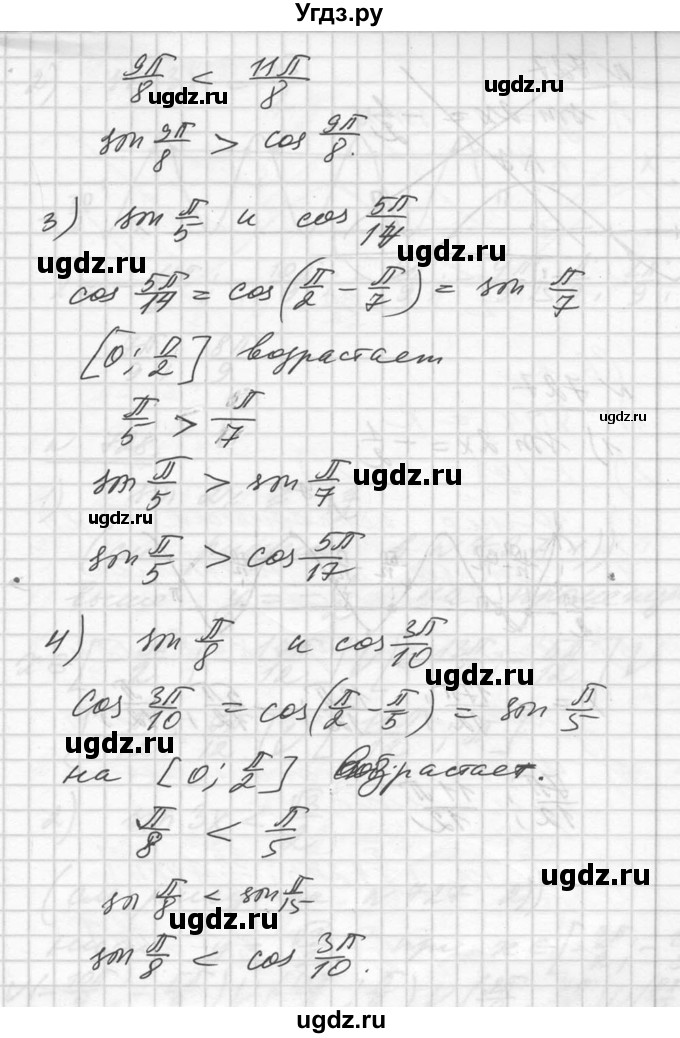 Угдз.ру
9π/8 < 11π/8
ugdz.ru
sin 9π/8 > cos 9π/8.
ugdz.ru
3) sin π/5 и cos 5π/14
ugdz.ru ugdz.ru
cos 5π/14 = cos(π/2 − π/7) = sin π/7
[0; π/2] возрастает
π/5 > π/7
ugdz.ru
sin π/5 > sin π/7
ugdz.ru
ugdz.ru
sin π/5 > cos 5π/17
4) sin π/8 и cos 3π/10
ugdz.ru
cos 3π/10 = cos(π/2 − π/5) = sin π/5
ugdz.ru
на [0; π/2] возрастает.
π/8 < π/5
ugdz.ru
sin π/8 < sin π/15
ugdz.ru
sin π/8 < cos 3π/10.
ugdz.ru